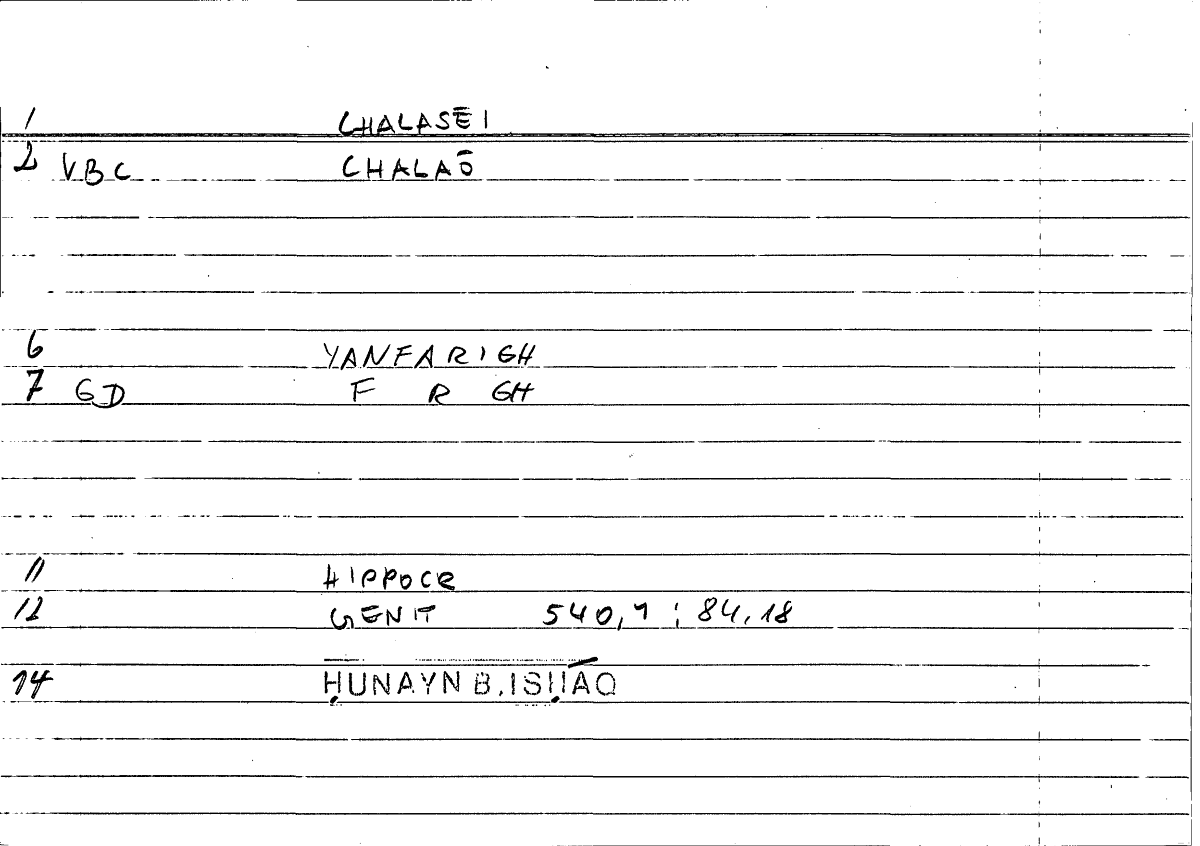 1 CHALASĒI
2 VBC CHALAŌ
6 YANFARIGH
7 GD F R GH
11 HIPPOCR
12 GENIT 540,9 ; 84,18
14 ḤUNAYN B.ISḤĀQ